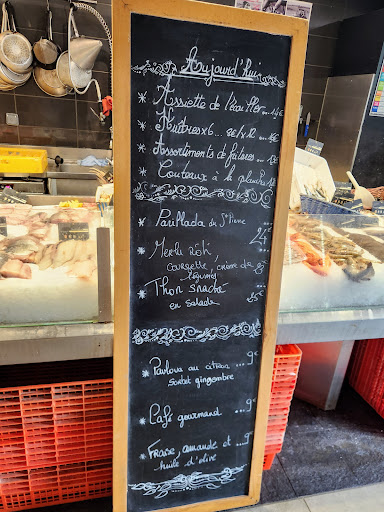 Aujourd'hui
* Assiette de l'écailler ...
* Huîtres x6 ...
* Assortiments de fritures ...
* Couteaux à la plancha
* Parillada du St Pierre
* Merlu rôti,
courgette, crème de
légumes
* Thon snacké
en salade
* Pavlova au citron ... 9€
sorbet gingembre
* Café gourmand ... 9€
* Fraise, amande et ... 9
huile d'olive